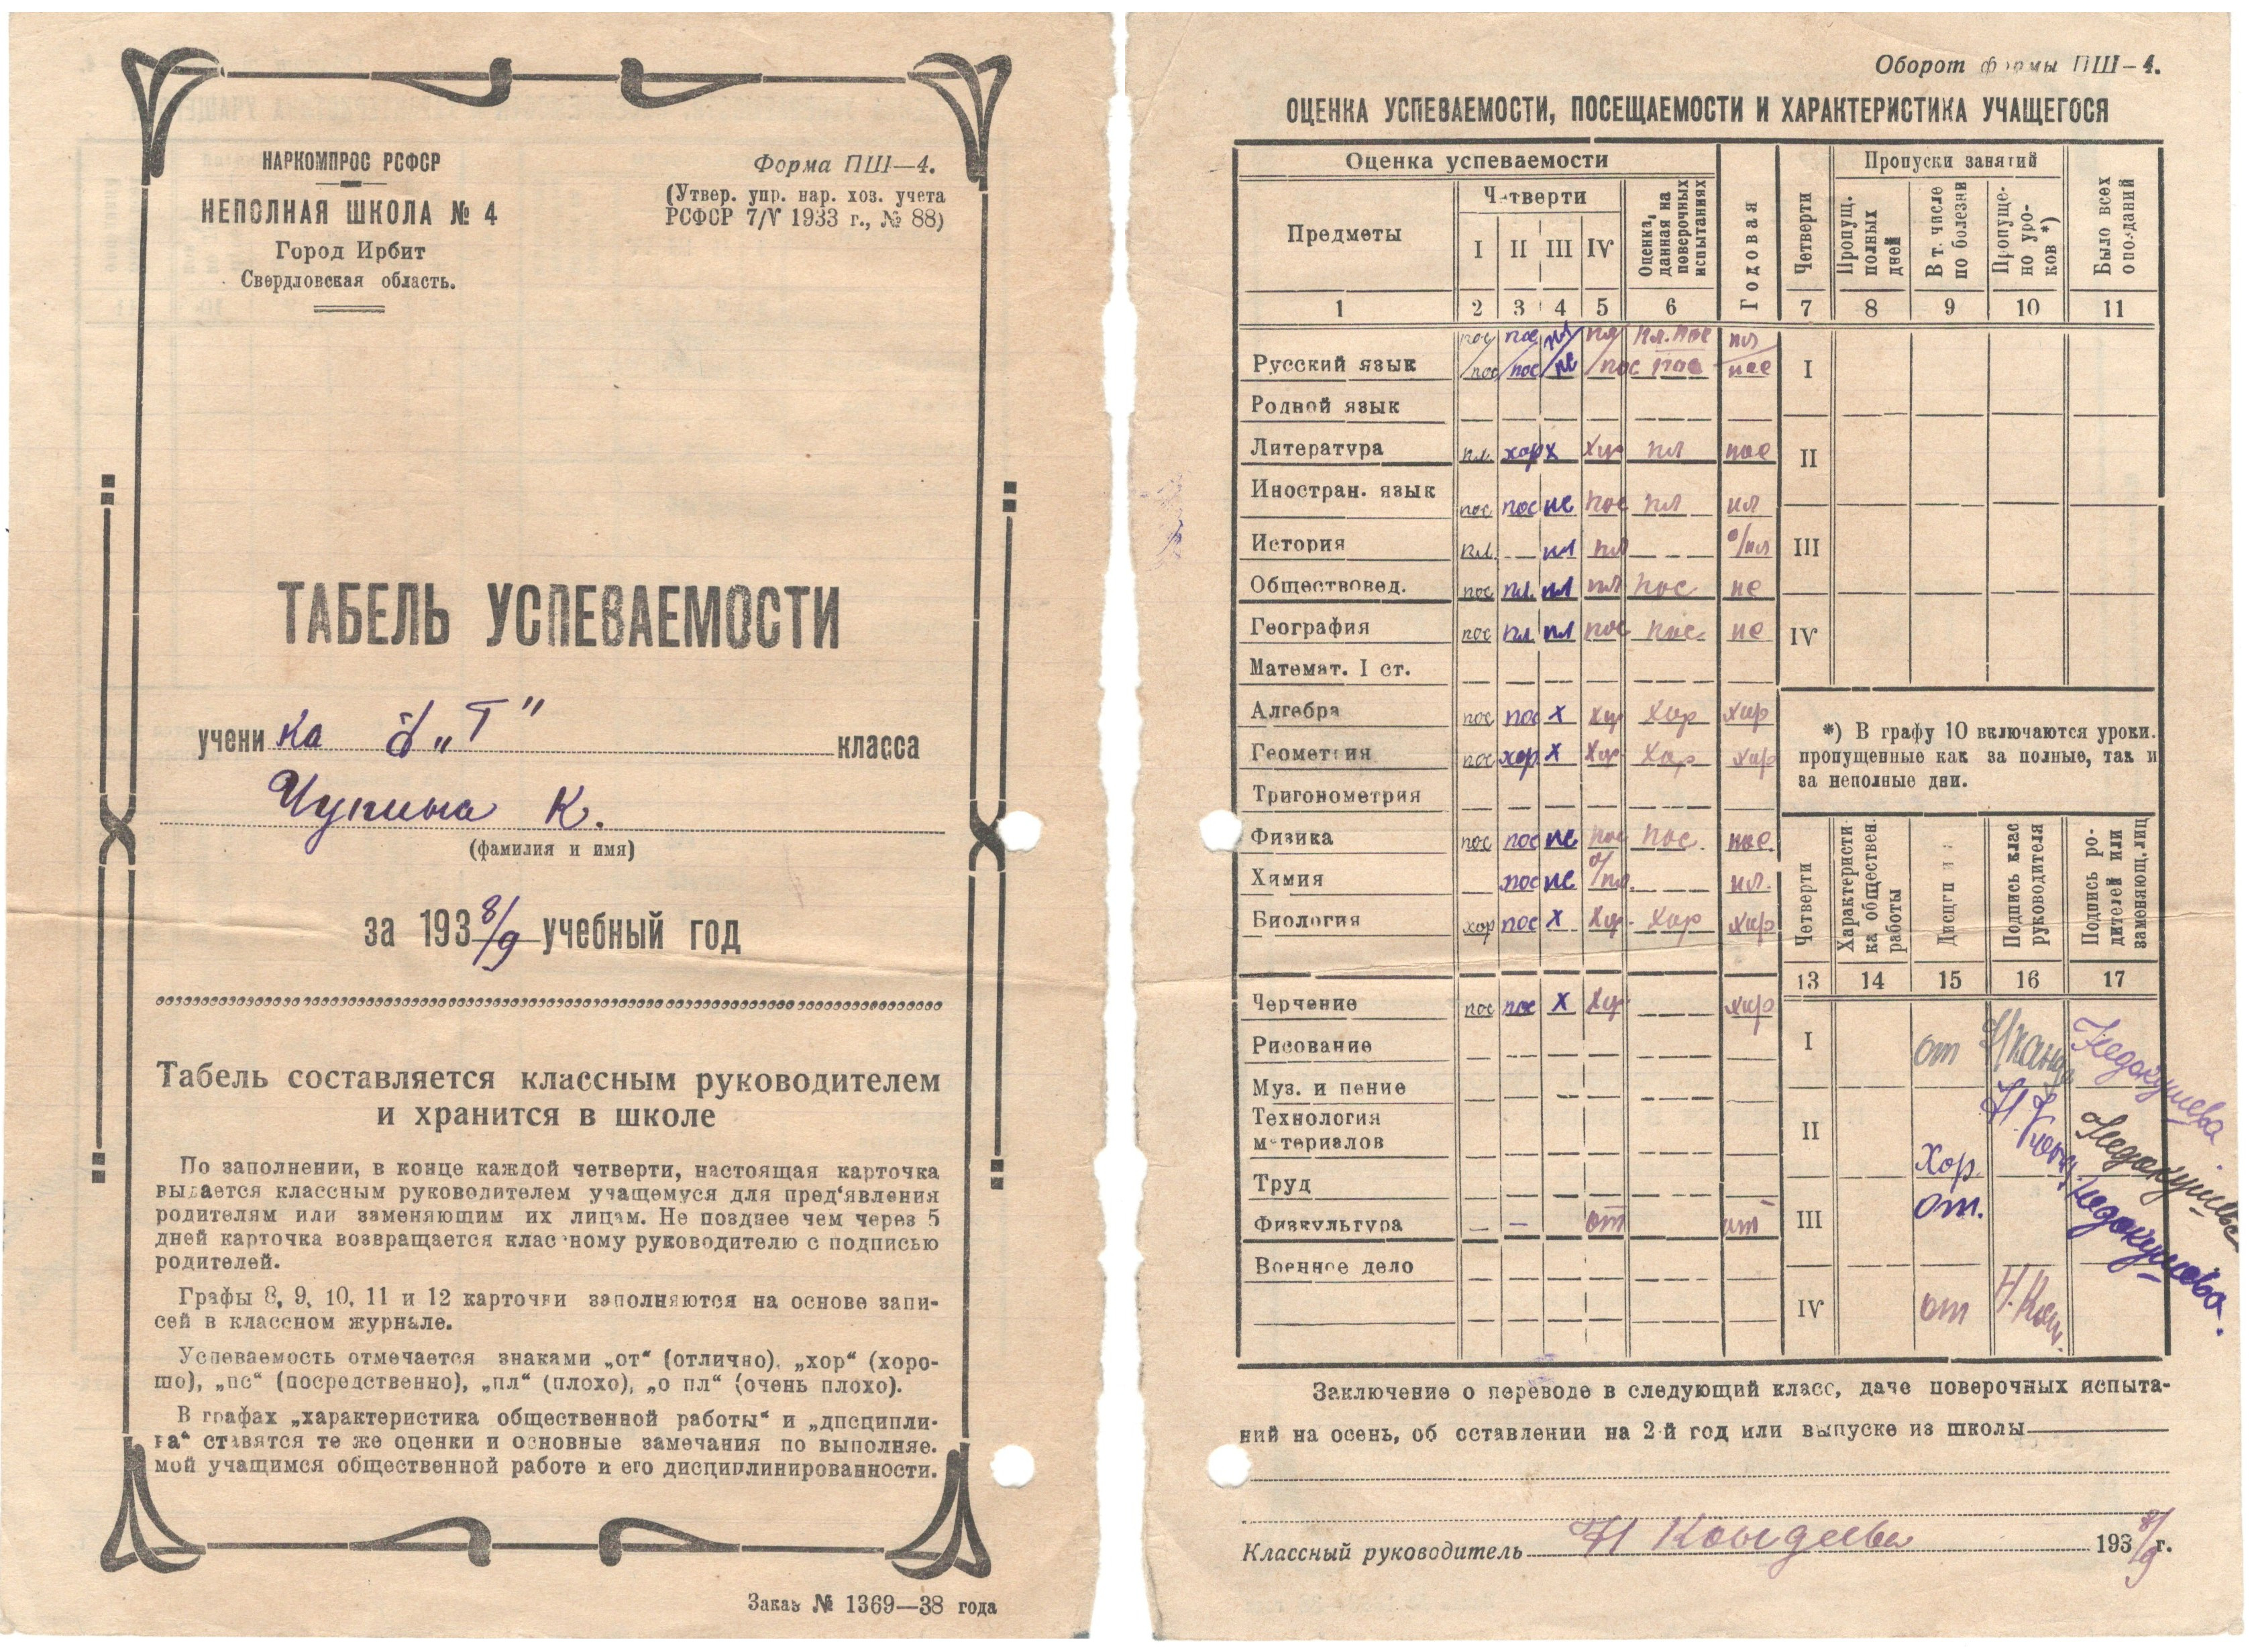 НАРКОМПРОС РСФСР
НЕПОЛНАЯ ШКОЛА № 4
Город Ирбит
Свердловская область.
Форма ПШ—4.
(Утвер. упр. нар. хоз. учета
РСФСР 7/V 1933 г., № 88)
ТАБЕЛЬ УСПЕВАЕМОСТИ
ученика „Г" класса
Чупина К.
(фамилия и имя)
за 1938/9 учебный год
Табель составляется классным руководителем
и хранится в школе
По заполнении, в конце каждой четверти, настоящая карточка
выдается классным руководителем учащемуся для пред'явления
родителям или заменяющим их лицам. Не позднее чем через 5
дней карточка возвращается классному руководителю с подписью
родителей.
Графы 8, 9, 10, 11 и 12 карточки заполняются на основе запи-
сей в классном журнале.
Успеваемость отмечается знаками „от“ (отлично), „хор“ (хоро-
шо), „пс“ (посредственно), „пл“ (плохо), „о пл“ (очень плохо).
В графах „характеристика общественной работы“ и „дисципли-
на“ ставятся те же оценки и основные замечания по выполняе-
мой учащимся общественной работе и его дисциплинированности.
Заказ № 1369—38 года
Оборот формы ПШ—4.
ОЦЕНКА УСПЕВАЕМОСТИ, ПОСЕЩАЕМОСТИ И ХАРАКТЕРИСТИКА УЧАЩЕГОСЯ
Оценка успеваемости
Предметы
Четверти
I II III IV
Оценка, данная на поверочных испытаниях
Годовая
Четверти
Пропуски занятий
Пропущ. полных дней
В т. числе по болезни
Пропуще-но уро-ков *)
Было всех опозданий
1 2 3 4 5 6 7 8 9 10 11
пос пос пл пл пл. пос пл
Русский язык пос пос пс пос пос пос I
Родной язык
Литература пл хор х хор пл пос II
Иностран. язык пос пос пс пос пл пл
История пл. — пл пл — о/пл III
Обществовед. пос пл пл пл пос пс
География пос пл пл пос пос пс IV
Математ. I ст.
Алгебра пос пос х хор хор хор
Геометрия пос хор х хор хор хор
Тригонометрия
Физика пос пос пс пос пос. пос.
Химия — пос пс о/пл. — пл.
Биология хор пос х хор. хор хор
Черчение пос пос х хор — хор
Рисование
Муз. и пение
Технология
материалов
Труд
Физкультура — — от от
Военное дело
*) В графу 10 включаются уроки.
пропущенные как за полные, так и
за неполные дни.
Четверти
Характеристи-ка обществен. работы
Дисципл
Подпись клас руководителя
Подпись ро-дителей или заменяющ. лиц
13 14 15 16 17
I от Недокушева
II Хор. Недокушева
III от. Недокушева.
IV от
Заключение о переводе в следующий класс, даче поверочных испыта-
ний на осень, об оставлении на 2-й год или выпуске из школы
Классный руководитель 1938/9 г.